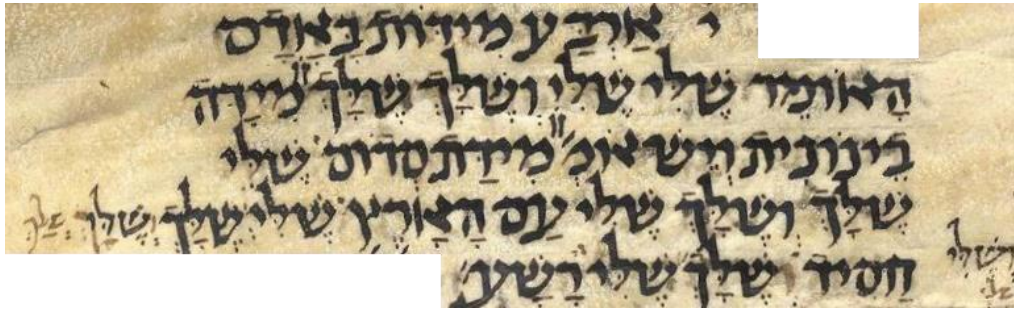 י אַרְבַּע מִידּוֹת בָּאָדָם
הָאוֹמֵר שֶׁלִּי שֶׁלִּי וְשֶׁלָּךְ שֶׁלָּךְ מִידָּה
בֵינוֹנִית וְיֵשׁ אוֹמְ' מִידַּת סְדוֹם שֶׁלִּי
שֶׁלָּךְ וְשֶׁלָּךְ שֶׁלִּי עַם הָאָרֶץ שֶׁלִּי שֶׁלָּךְ וְשֶׁלָּךְ שֶׁלָּךְ
חָסִיד שֶׁלָּךְ שֶׁלִּי רָשָׁע
וְשֶׁלִּי